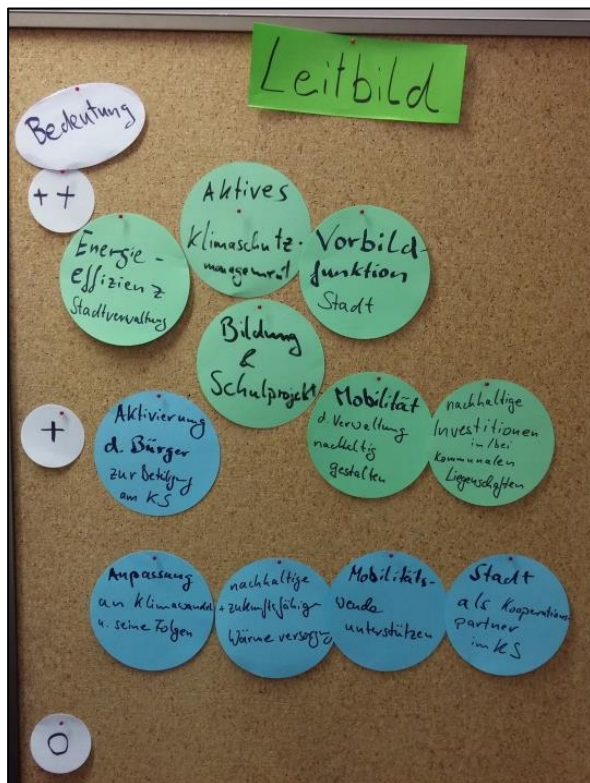 Leitbild
Bedeutung
++
Aktives
Klimaschutz-
management
Energie-
effizienz
Stadtverwaltung
Vorbild-
funktion
Stadt
Bildung
&
Schulprojekt
+
Aktivierung
d. Bürger
zur Betilgung
am KS
Mobilität
d. Verwaltung
nachhaltig
gestalten
nachhaltige
Investitionen
in/bei
Kommunalen
Liegenschaften
Anpassung
an Klimawandel
u. seine Folgen
nachhaltige
+ zukunftsfähige
Wärmeversorgung
Mobilitäts-
wende
unterstützen
Stadt
als Kooperations-
partner
im KS
O